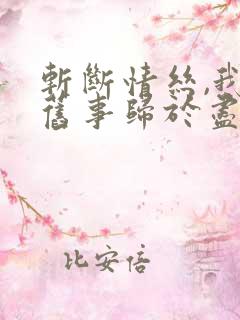 斬斷情絲,我
舊事歸於盡
比安倍